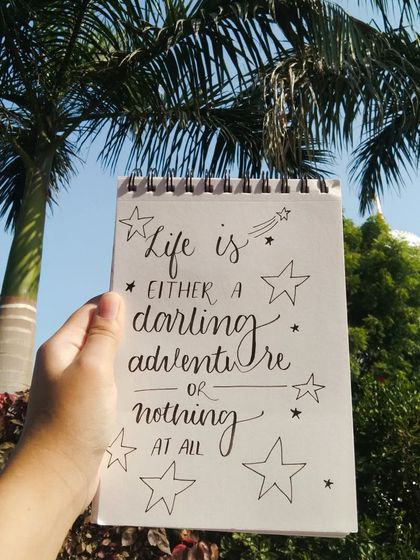 Life is
EITHER A
darling
adventure
OR
nothing
AT ALL